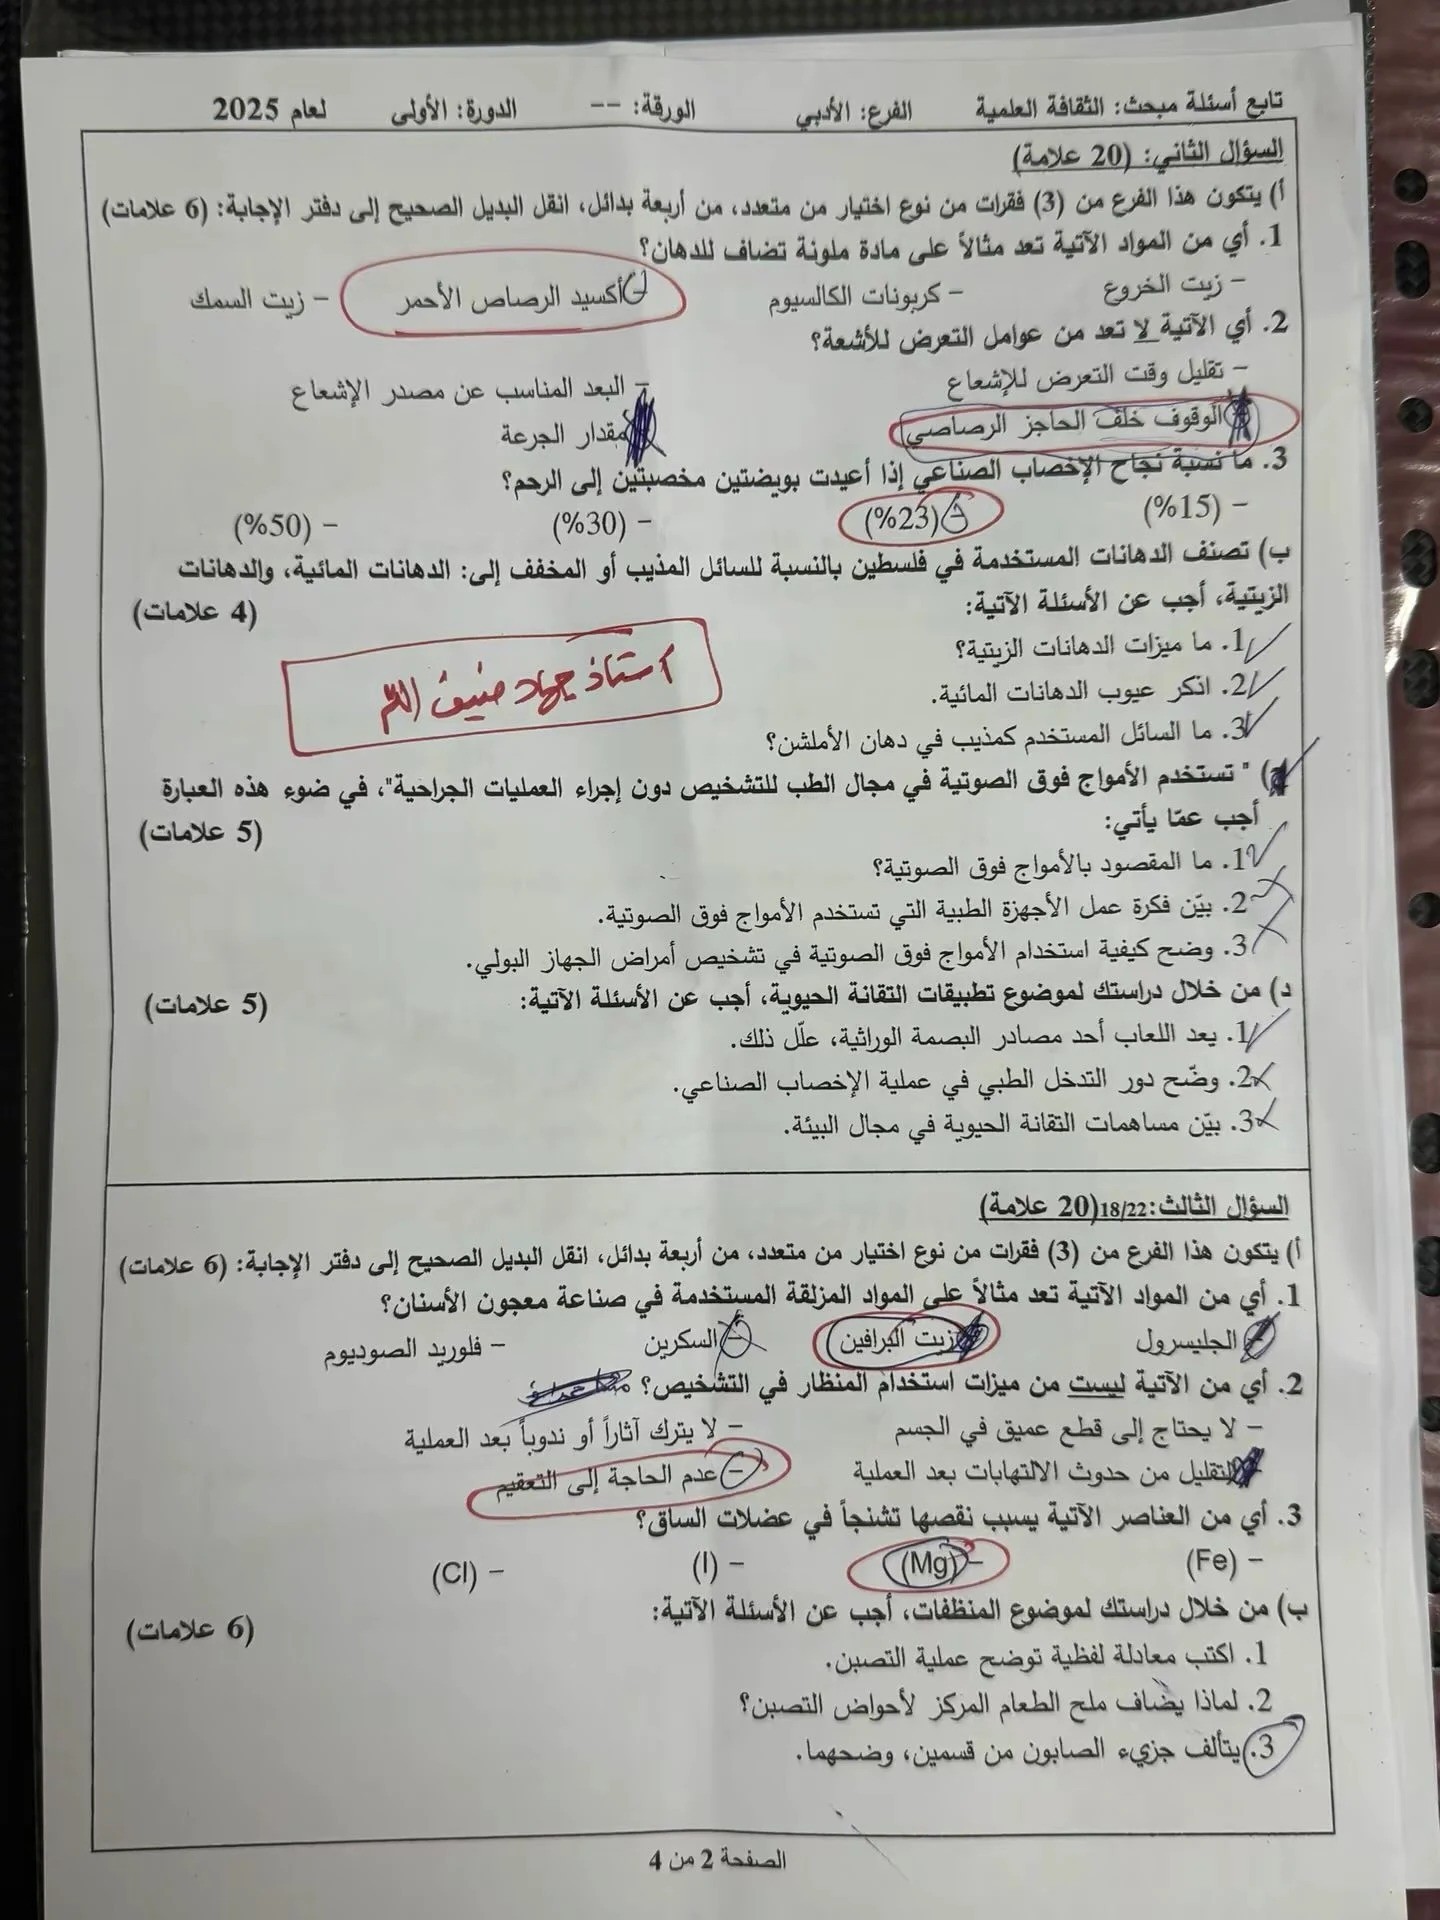 تابع أسئلة مبحث: الثقافة العلمية الفرع: الأدبي الورقة: -- الدورة: الأولى لعام 2025
السؤال الثاني: (20 علامة)
أ) يتكون هذا الفرع من (3) فقرات من نوع اختيار من متعدد، من أربعة بدائل، انقل البديل الصحيح إلى دفتر الإجابة: (6 علامات)
1. أي من المواد الآتية تعد مثالاً على مادة ملونة تضاف للدهان؟
- زيت الخروع - كربونات الكالسيوم - أكسيد الرصاص الأحمر - زيت السمك
2. أي الآتية لا تعد من عوامل التعرض للأشعة؟
- تقليل وقت التعرض للإشعاع - البعد المناسب عن مصدر الإشعاع
الوقوف خلف الحاجز الرصاصي مقدار الجرعة
3. ما نسبة نجاح الإخصاب الصناعي إذا أعيدت بويضتين مخصبتين إلى الرحم؟
- (15%) - (23%) - (30%) - (50%)
ب) تصنف الدهانات المستخدمة في فلسطين بالنسبة للسائل المذيب أو المخفف إلى: الدهانات المائية، والدهانات
الزيتية، أجب عن الأسئلة الآتية: (4 علامات)
1. ما ميزات الدهانات الزيتية؟
2. اذكر عيوب الدهانات المائية.
استاذ جهاد ضيف الله
3. ما السائل المستخدم كمذيب في دهان الأملشن؟
ج) "تستخدم الأمواج فوق الصوتية في مجال الطب للتشخيص دون إجراء العمليات الجراحية"، في ضوء هذه العبارة
أجب عمّا يأتي: (5 علامات)
1. ما المقصود بالأمواج فوق الصوتية؟
2. بيّن فكرة عمل الأجهزة الطبية التي تستخدم الأمواج فوق الصوتية.
3. وضح كيفية استخدام الأمواج فوق الصوتية في تشخيص أمراض الجهاز البولي.
د) من خلال دراستك لموضوع تطبيقات التقانة الحيوية، أجب عن الأسئلة الآتية: (5 علامات)
1. يعد اللعاب أحد مصادر البصمة الوراثية، علّل ذلك.
2. وضّح دور التدخل الطبي في عملية الإخصاب الصناعي.
3. بيّن مساهمات التقانة الحيوية في مجال البيئة.
السؤال الثالث:18/22(20 علامة)
أ) يتكون هذا الفرع من (3) فقرات من نوع اختيار من متعدد، من أربعة بدائل، انقل البديل الصحيح إلى دفتر الإجابة: (6 علامات)
1. أي من المواد الآتية تعد مثالاً على المواد المزلقة المستخدمة في صناعة معجون الأسنان؟
- الجليسرول - زيت البرافين - السكرين - فلوريد الصوديوم
2. أي من الآتية ليست من ميزات استخدام المنظار في التشخيص؟
- لا يحتاج إلى قطع عميق في الجسم - لا يترك آثاراً أو ندوباً بعد العملية
- التقليل من حدوث الالتهابات بعد العملية - عدم الحاجة إلى التعقيم
3. أي من العناصر الآتية يسبب نقصها تشنجاً في عضلات الساق؟
- (Fe) - (Mg) - (I) - (Cl)
ب) من خلال دراستك لموضوع المنظفات، أجب عن الأسئلة الآتية: (6 علامات)
1. اكتب معادلة لفظية توضح عملية التصبن.
2. لماذا يضاف ملح الطعام المركز لأحواض التصبن؟
3. يتألف جزيء الصابون من قسمين، وضحهما.
الصفحة 2 من 4